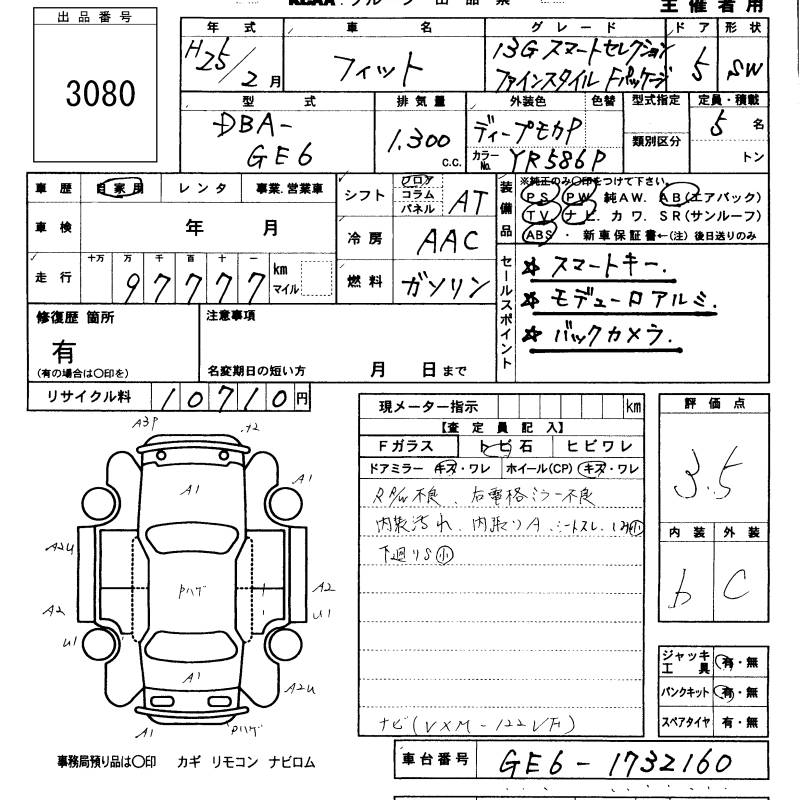 KCAA グループ 出品票
主催者用
出品番号
3080
年式 車名 グレード ドア 形状
H25/2月 フィット 13G スマートセレクション ファインスタイル Fパッケージ 5 SW
型式 排気量 外装色 色替 型式指定 定員・積載
DBA- GE6 1.300 c.c. ディープモカP 5名
カラーNo. YR586P 類別区分 トン
車歴 自家用 レンタ 事業.営業車
車検 年 月
走行 十万 万 千 百 十 一 km マイル
97777
シフト フロア コラム パネル AT
冷房 AAC
燃料 ガソリン
装備品 ※純正のみ○印をつけて下さい。
PS PW 純AW. AB(エアバッグ)
TV ナビ. カワ. SR(サンルーフ)
ABS ・ 新車保証書←(注) 後日送りのみ
セールスポイント
☆ スマートキー.
☆ モデューロアルミ.
☆ バックカメラ.
修復歴 箇所
有
(有の場合は○印を)
注意事項
名変期日の短い方 月 日まで
リサイクル料 10710円
現メーター指示 km
【査定員記入】
Fガラス トビ石 ヒビワレ
ドアミラー キズ・ワレ ホイール(CP) キズ・ワレ
R P/W不良、右電格ミラー不良
内装汚れ、内張りA、シートスレ、シミ小
下廻りS小
ナビ(VXM-122VFi)
評価点
3.5
内装 外装
b C
A3P A2
A1 A1
A2U
Pハゲ
A2 A2
U1 U1
A1 A2U
A1 Pハゲ
ジャッキ工具 有・無
パンクキット 有・無
スペアタイヤ 有・無
事務局預り品は○印 カギ リモコン ナビロム
車台番号 GE6-1732160